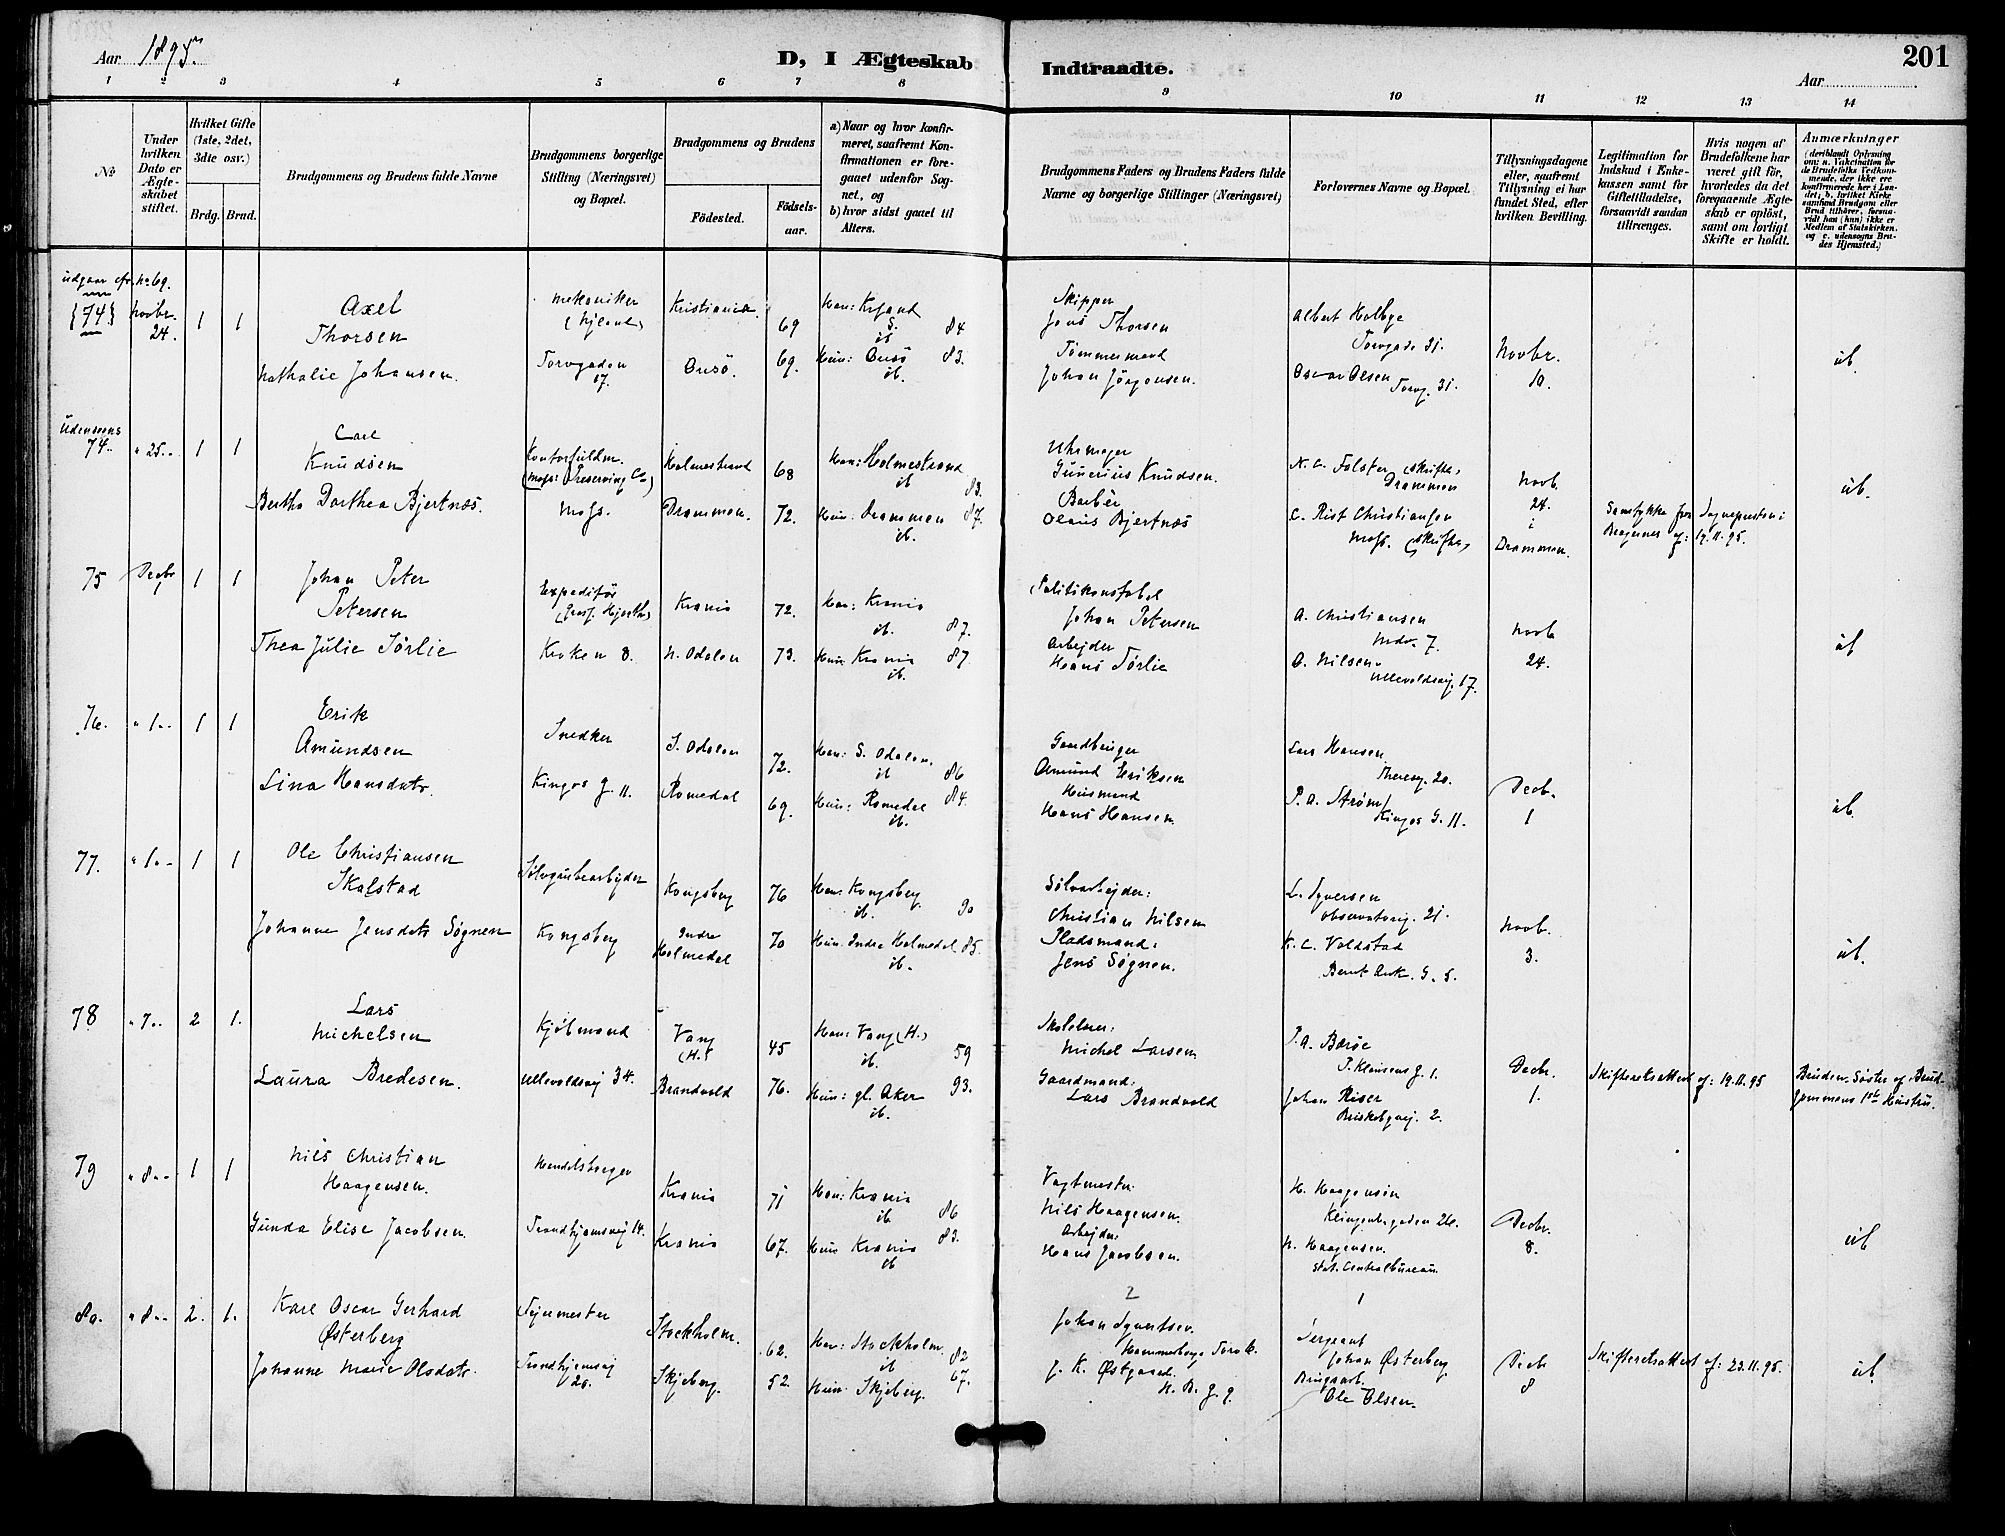 Aar 1895.
D, I Ægteskab Indtraadte.
Aar
201
1 2 3 4 5 6 7 8 9 10 11 12 13 14
No
Under hvilken Dato er Ægteskabet stiftet.
Hvilket Gifte (1ste, 2det, 3die osv.)
Brdg. Brud.
Brudgommens og Brudens fulde Navne
Brudgommens borgerlige Stilling (Næringsvei) og Bopæl.
Brudgommens og Brudens
Födested.
Födselsaar.
a) Naar og hvor konfirmeret, saafremt Konfirmationen er foregaaet udenfor Sognet, og
b) hvor sidst gaaet til Alters.
Brudgommens Faders og Brudens Faders fulde Navne og borgerlige Stillinger (Næringsvei)
Forlovernes Navne og Bopæl.
Tillysningsdagene eller, saafremt Tillysning ei har fundet Sted, efter hvilken Bevilling.
Legitimation for Indskud i Enkekassen samt for Giftetilladelse, forsaavidt saadan tiltrænges.
Hvis nogen af Brudefolkene har været gift för, hvorledes da det foregaaende Ægteskab er oplöst, samt om lovligt Skifte er holdt.
Anmærkninger
(deriblandt Oplysning om: a. Vakcination for de Brudefolks Vedkommende, der ikke ere konfirmerede her i Landet; b. hvilket Kirkesamfund Brudgom eller Brud tilhörer, forsaavidt han (hun) ikke er Medlem af Statskirken, og c. udensogns Brudes Hjemsted.)
udgaar cfr. No 69.
74 Novbr. 24. 1 1
Axel Thorsen
Nathalie Johansen.
Mekaniker
Torvgaden 17.
Kristiania 69
Onsö. 69.
Han: Krsand S. ib 84
Hun: Onsö ib. 83.
Skipper
Jens Thorsen
Tømmermand
Johan Jörgensen.
Albert Holbye
Torvgade 31.
Oscar Olsen Torvg. 31.
Novbr. 10.
ub.
Udensogns
74. " 25. " 1 1
Carl Knudsen
Bertha Dorthea Bjertnæs.
Kontorfuldm.
(Moss Preserving Co)
Moss.
Holmestrand 68
Drammen. 72.
Han: Holmestrand ib 83.
Hun: Drammen ib. 87.
Uhrmager
Gunerius Knudsen.
Barbér
Olaus Bjertnæs
N. C. Folster (skriftl.)
Drammen
C. Rist Christiansen
Moss. (skriftl.)
Novb. 24. i Drammen.
Samtykke fra Sognepresten i
Bragernes af: 19.11.95.
ub.
75 Decbr 1 1 1
Johan Peter Petersen
Thea Julie Sørlie
Expeditör
Kroken 8.
Krania 72.
N. Odalen 73.
Han: Krania ib. 87.
Hun: Krania ib. 87.
Politikonstabel
Johan Petersen
Arbejder
Hans Sørlie
A. Christiansen
7.
O. Nilsen
Ullevoldsvej. 17.
Novb 24.
ub
76. " 1. " 1 1
Erik Amundsen
Lina Hansdatr.
Snedker
Kingos g. 11.
S. Odalen 72.
Romedal 69.
Han: S. Odalen. ib 86
Hun: Romedal ib. 84.
Gaardbruger
Amund Eriksen
Husmand
Hans Hansen.
Lars Hansen
Thereseg. 20.
P. A. Strøm
Kingos G. 11.
Decb. 1
ub.
77. " 1. " 1 1
Ole Christiansen Skalstad
Johanne Jensdatr Søgnen
Sølvgrubearbejder
Kongsberg
Kongsberg 76
Indre Holmedal 70
Han: Kongsberg. ib. 90
Hun: Indre Holmedal 85. ib.
Sølvarbejder:
Christian Nilsen
Pladsmand:
Jens Søgnen.
L. Syversen
Observatorig. 21.
K. C. Voldstad
Bernt Ank. G. 5.
Novb. 3.
ub.
78 " 7. " 2 1.
Lars Michelsen
Laura Bredesen.
Kjøbmand
Ullevoldsvej 34.
Vang (H.) 45
Brandvold 76.
Han: Vang (H.) ib. 59
Hun: gl. Aker ib. 93.
Michel Larsen
Gaardmand:
Lars Brandvold
P. A. Barøe
1.
Johan Riser
Briskebyvej. 2.
Decbr. 1.
Skifteretsattest af: 19.11.95
Bruden Søster af Brudgommens 1ste Hustru.
79 " 8. " 1 1
Nils Christian Haagensen.
Gunda Elise Jacobsen.
Handelsborger
Trondhjemsvej 14.
Krania 71
Krania 67.
Han: Krania ib 86
Hun Krania ib 83.
Vagtmester
Nils Haagensen.
Arbejder
Hans Jacobsen.
H. Haagensen
Klingenbgaden 26.
N. Haagensen.
Stat. Centralbureau.
Decbr. 8.
ub
80. " 8. " 2. 1.
Karl Oscar Gerhard Østerberg
Johanne Marie Olsdatr.
Trondhjemsvej 20.
Stockholm. 62.
Skjeberg. 52.
Han: Stockholm. ib 82
Hun: Skjeberg. 67.
2
Johan Syvertsen.
J. K. Østgaard.
1
Sergeant
Johan Østerberg
Ole Olsen.
Decb 8
Skifteretsattest af: 23.11.95.
ub.